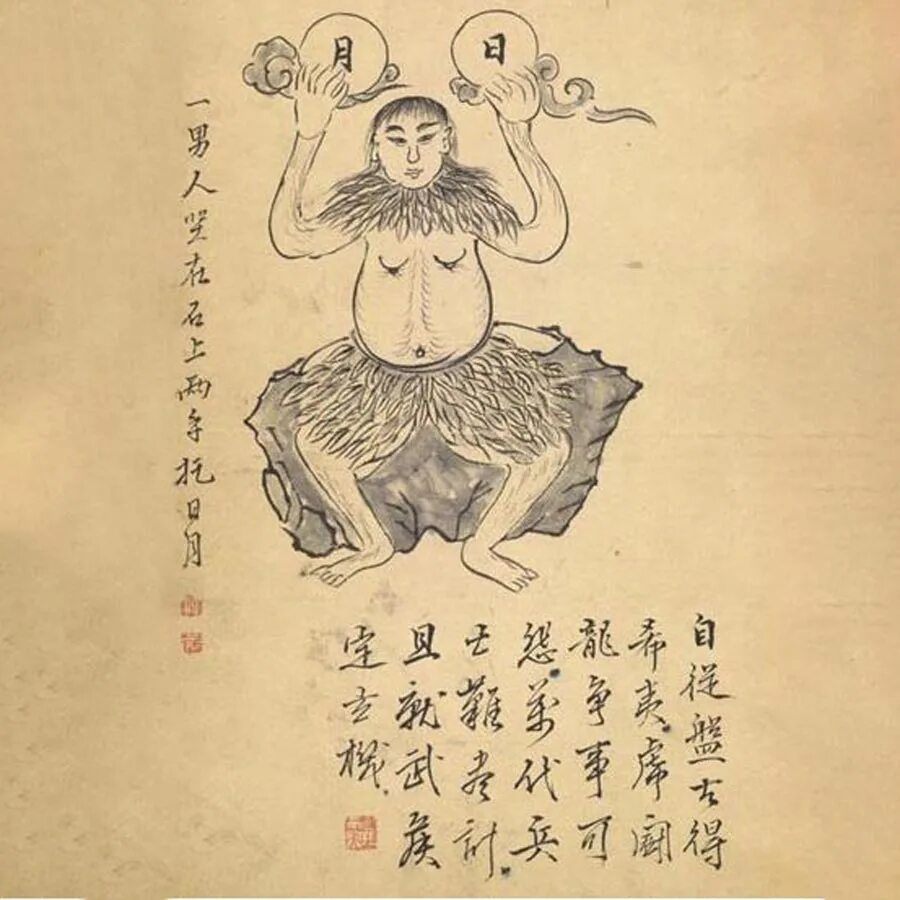 日
月
自從盤古得
希夷虎鬪
龍爭事可
怨萬代兵
士難尽計
且就武侯
定玄機
一男人坐在石上兩手托日月